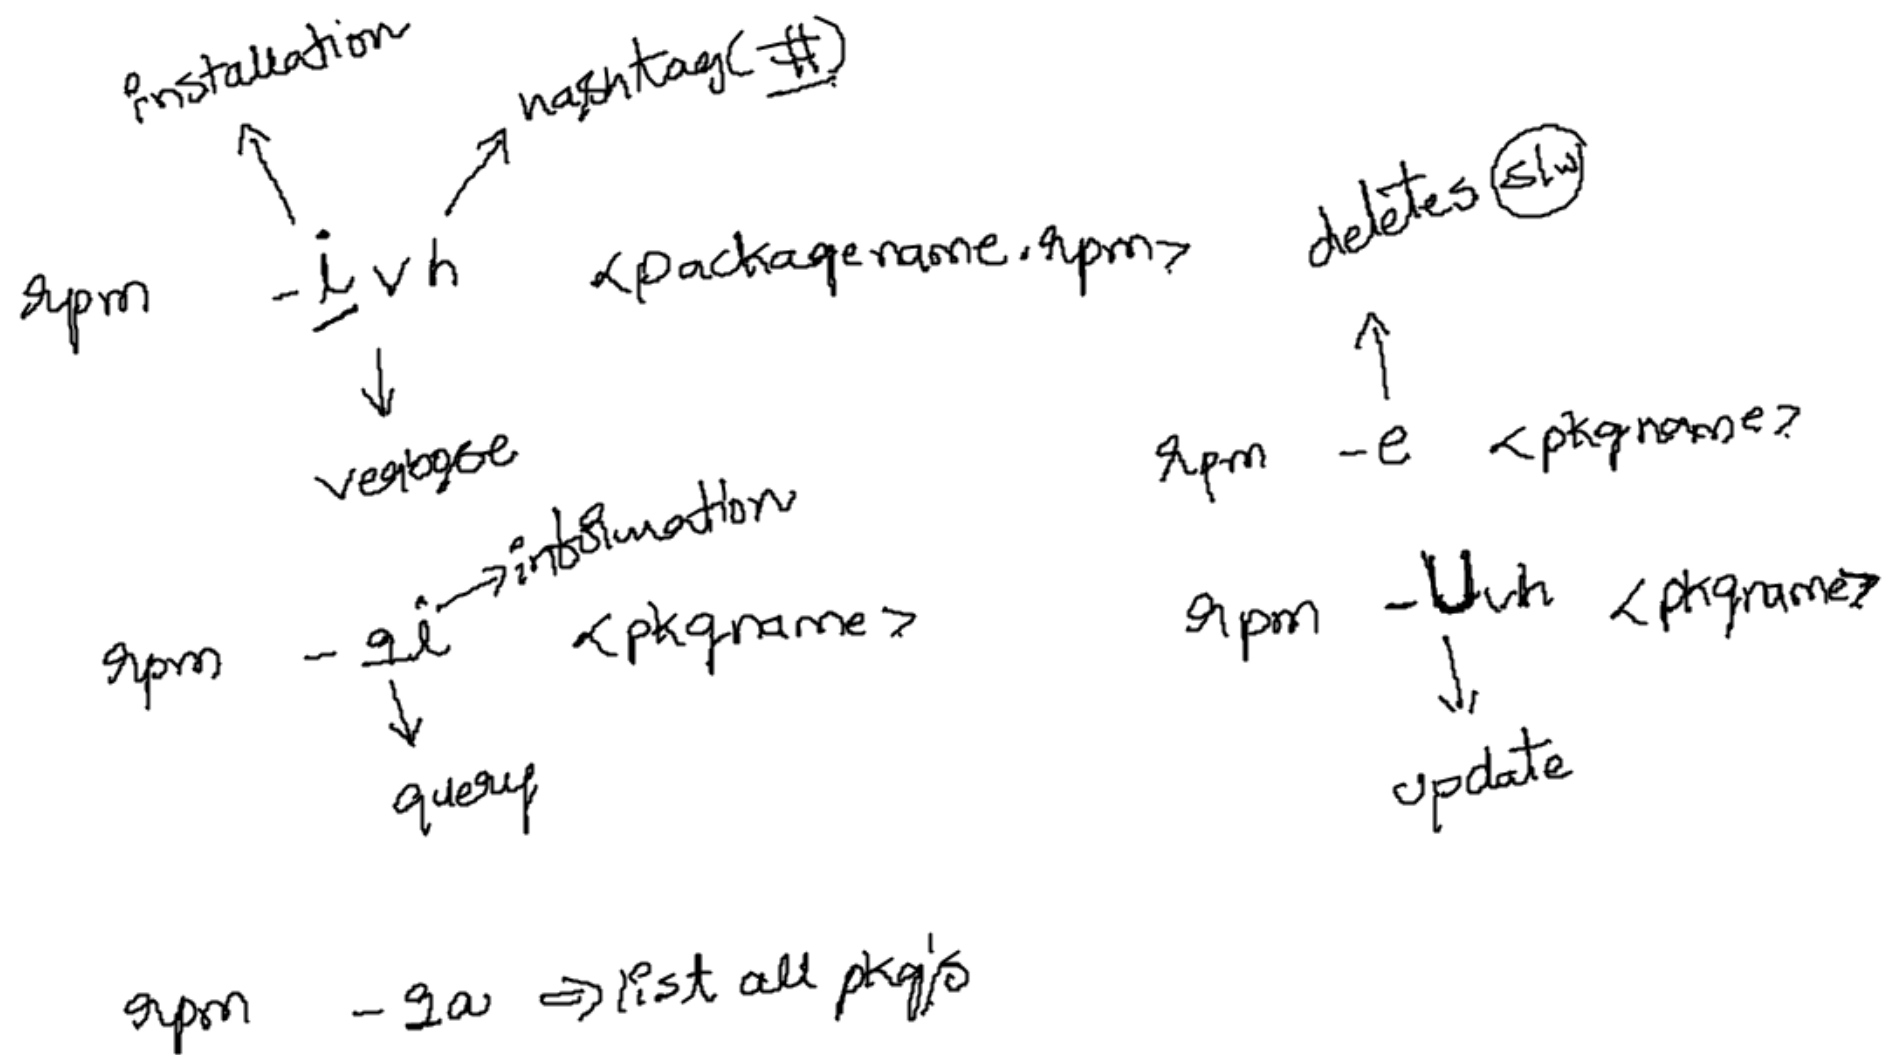 installation
hashtag(#)
rpm -ivh <packagename.rpm>
verbose
deletes s/w
rpm -e <pkgname>
information
rpm -qi <pkgname>
query
rpm -Uvh <pkgname>
update
rpm -qa ⇒ list all pkg's